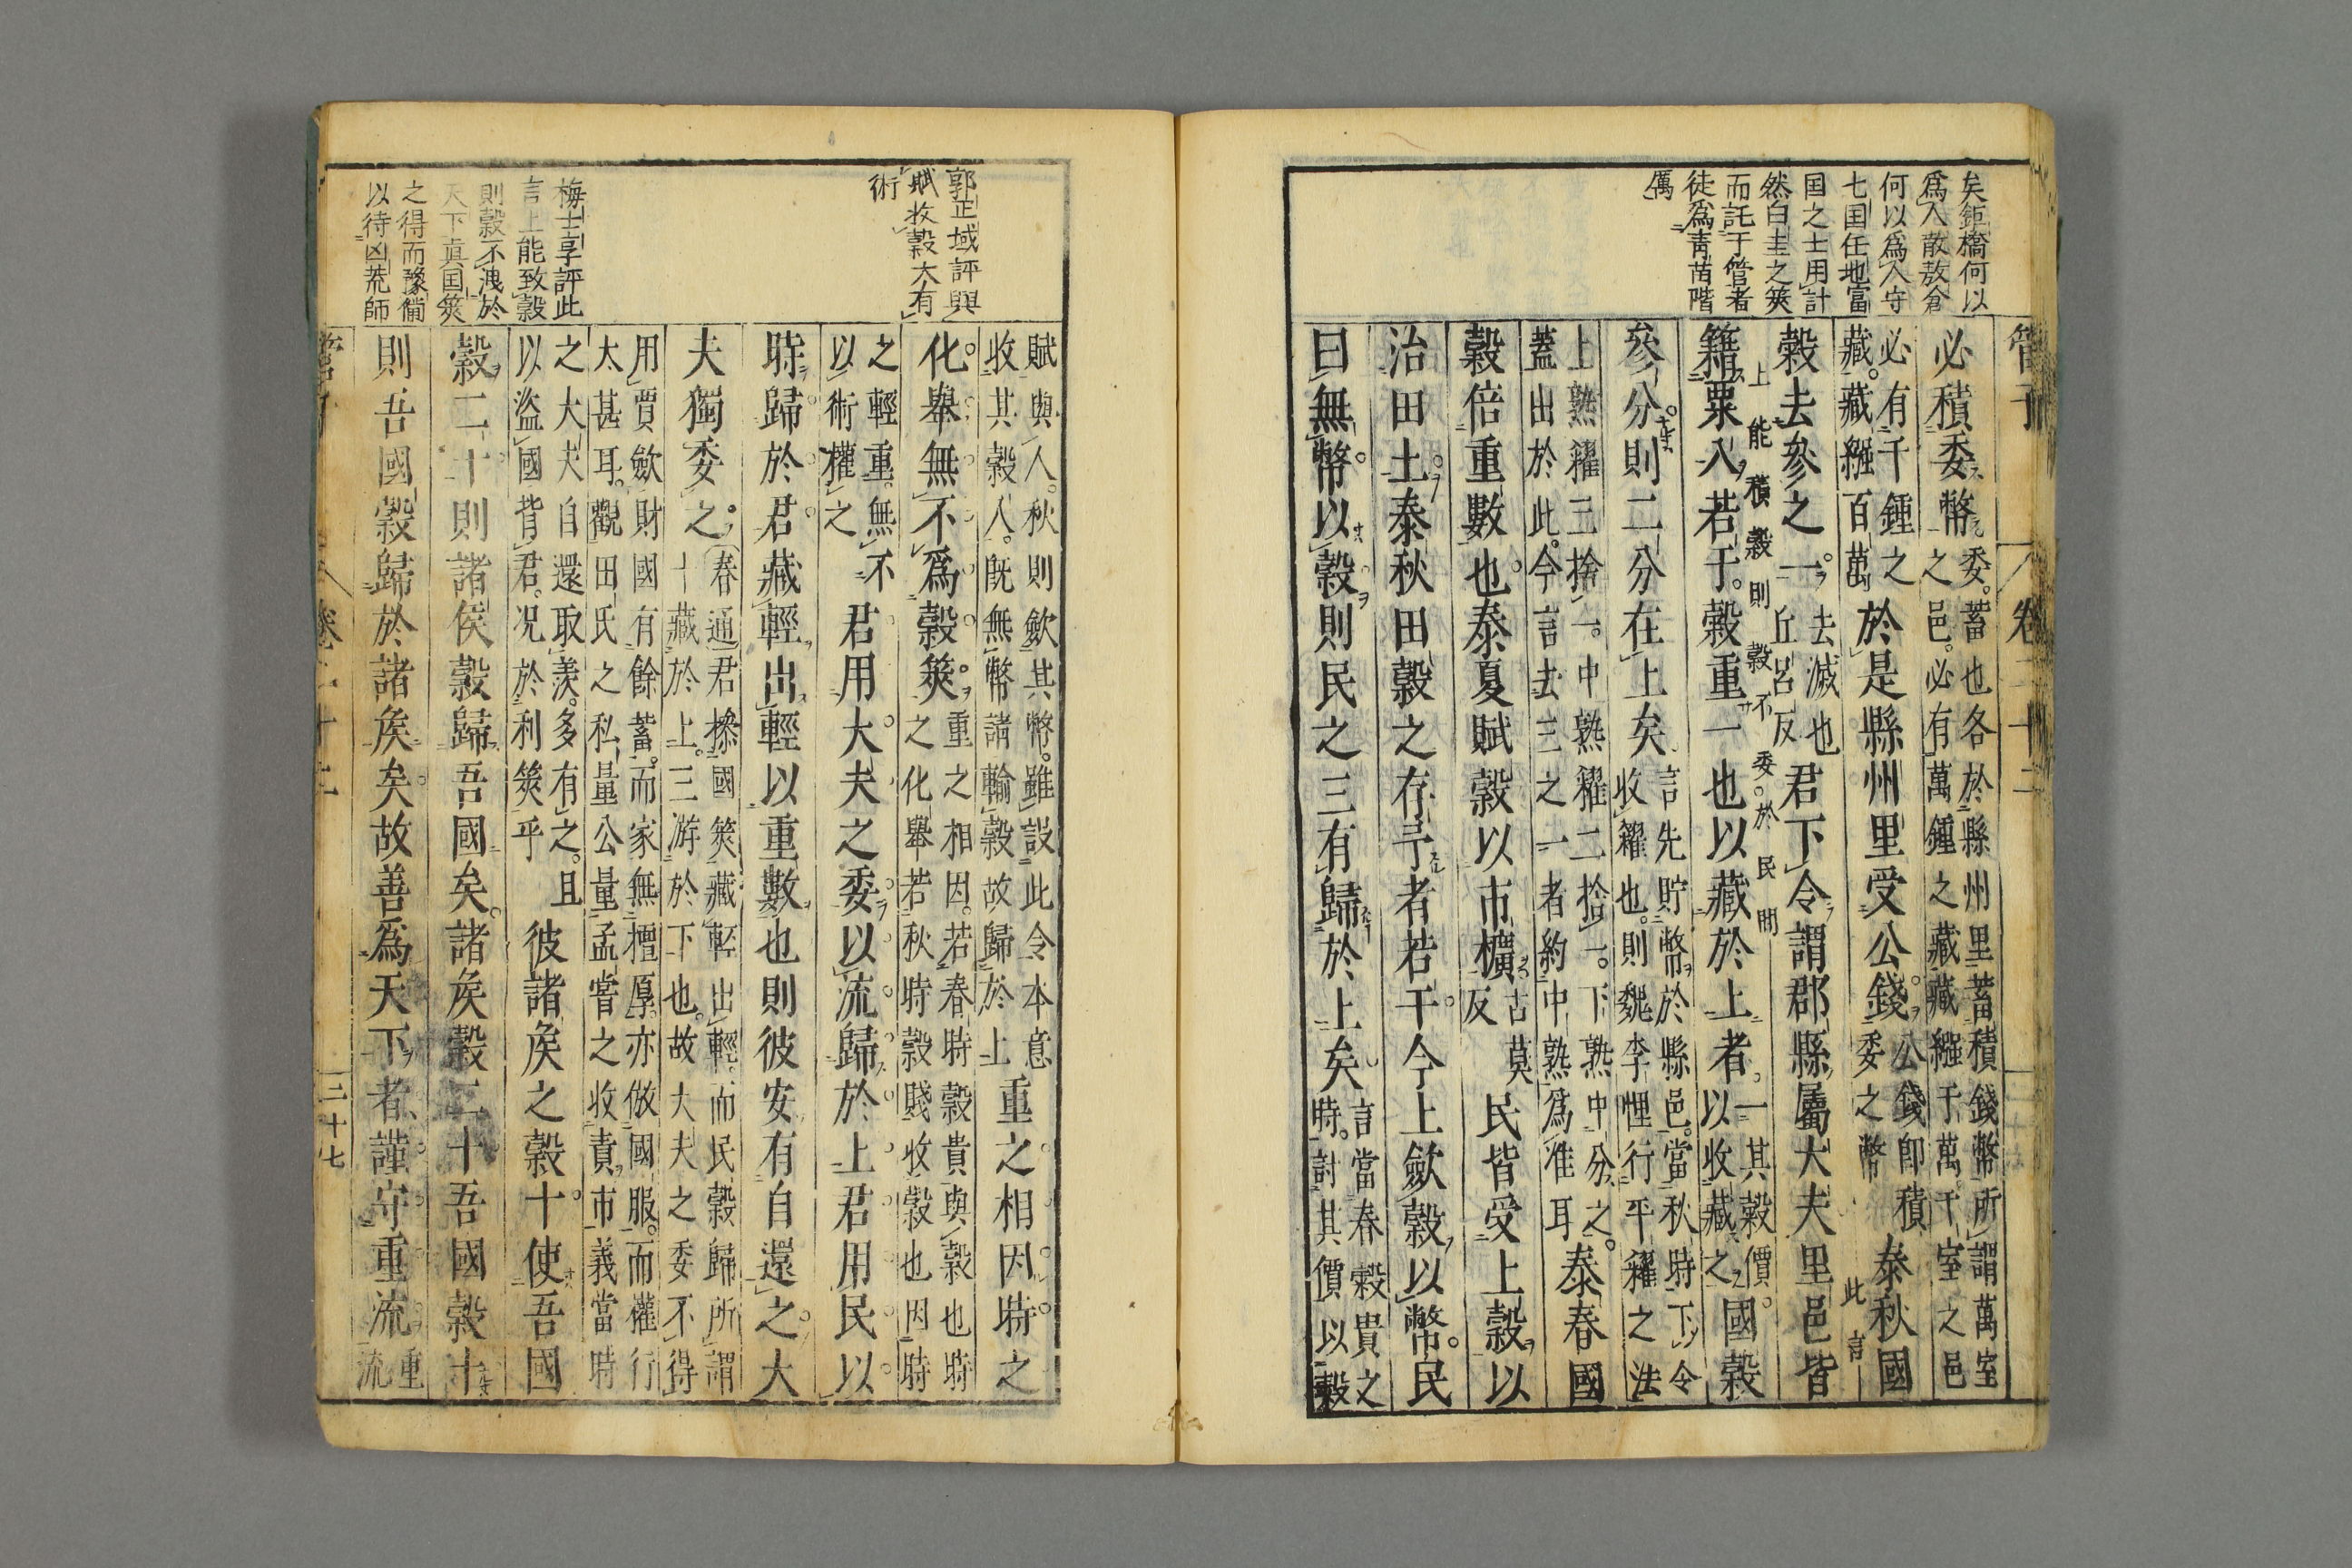 管子
卷二十二
矣鉅橋何以
爲入散敖倉
何以爲入守
七囯任地富
囯之士用計
然白圭之筴
而託于管者
徒爲靑苗階
厲
必積委幣委蓄也各於縣州里蓄積錢幣所謂萬室
之邑必有萬鍾之藏藏繦千萬千室之邑
必有千鍾之
藏藏繦百萬
於是縣州里受公錢公錢卽積
委之幣
泰秋國
穀去參之一去減也
丘呂反
君下令謂郡縣屬大夫里邑皆
籍粟入若干穀重一也以藏於上者一其穀價
以收藏之
國穀
此言
上能積穀則穀不委於民間
參分則二分在上矣言先貯幣於縣邑當秋時下令
收糴也則魏李悝行平糴之法
上熟糴三捨一中熟糴二捨一下熟中分之
蓋出於此今言去三之一者約中熟爲准耳
泰春國
穀倍重數也泰夏賦穀以市櫎古莫
反
民皆受上穀以
治田土泰秋田穀之存子者若干今上斂穀以幣民
曰無幣以穀則民之三有歸於上矣言當春穀貴之
時計其價以穀
郭正域評興
賦收穀大有
術
梅士享評此
言上能致穀
則穀不洩於
天下眞囯筴
之得而豫備
以待凶荒師
賦與人秋則斂其幣雖設此令本意
收其穀人旣無幣請輸穀故歸於上
重之相因時之
化舉無不爲穀筴重之相因若春時穀貴與穀也時
之化舉若秋時穀賤收穀也因時
之輕重無不
以術權之
君用大夫之委以流歸於上君用民以
時歸於君藏輕出輕以重數也則彼安有自還之大
夫獨委之春通君撡國筴藏輕出輕而民穀歸所謂
十藏於上三游於下也故大夫之委不得
用賈斂財國有餘蓄而家無檀厚亦倣國服而權行
太甚耳觀田氏之私量公量孟嘗之收責市義當時
之大夫自還取羨多有之且
以盜國背君况於利筴乎
彼諸矦之穀十使吾國
穀二十則諸侯穀歸吾國矣諸矦穀二十吾國穀十
則吾國穀歸於諸矦矣故善爲天下者謹守重流重
流
管子
卷二十二
二十七